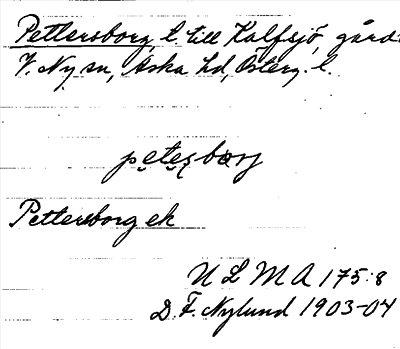 Pettersborg, t. till Kalfsjö, gård
V. Ny sn, Aska hd, Österg. l.
petesbårj
Pettersborg ek
ULMA 175:8
D. F. Nylund 1903-04